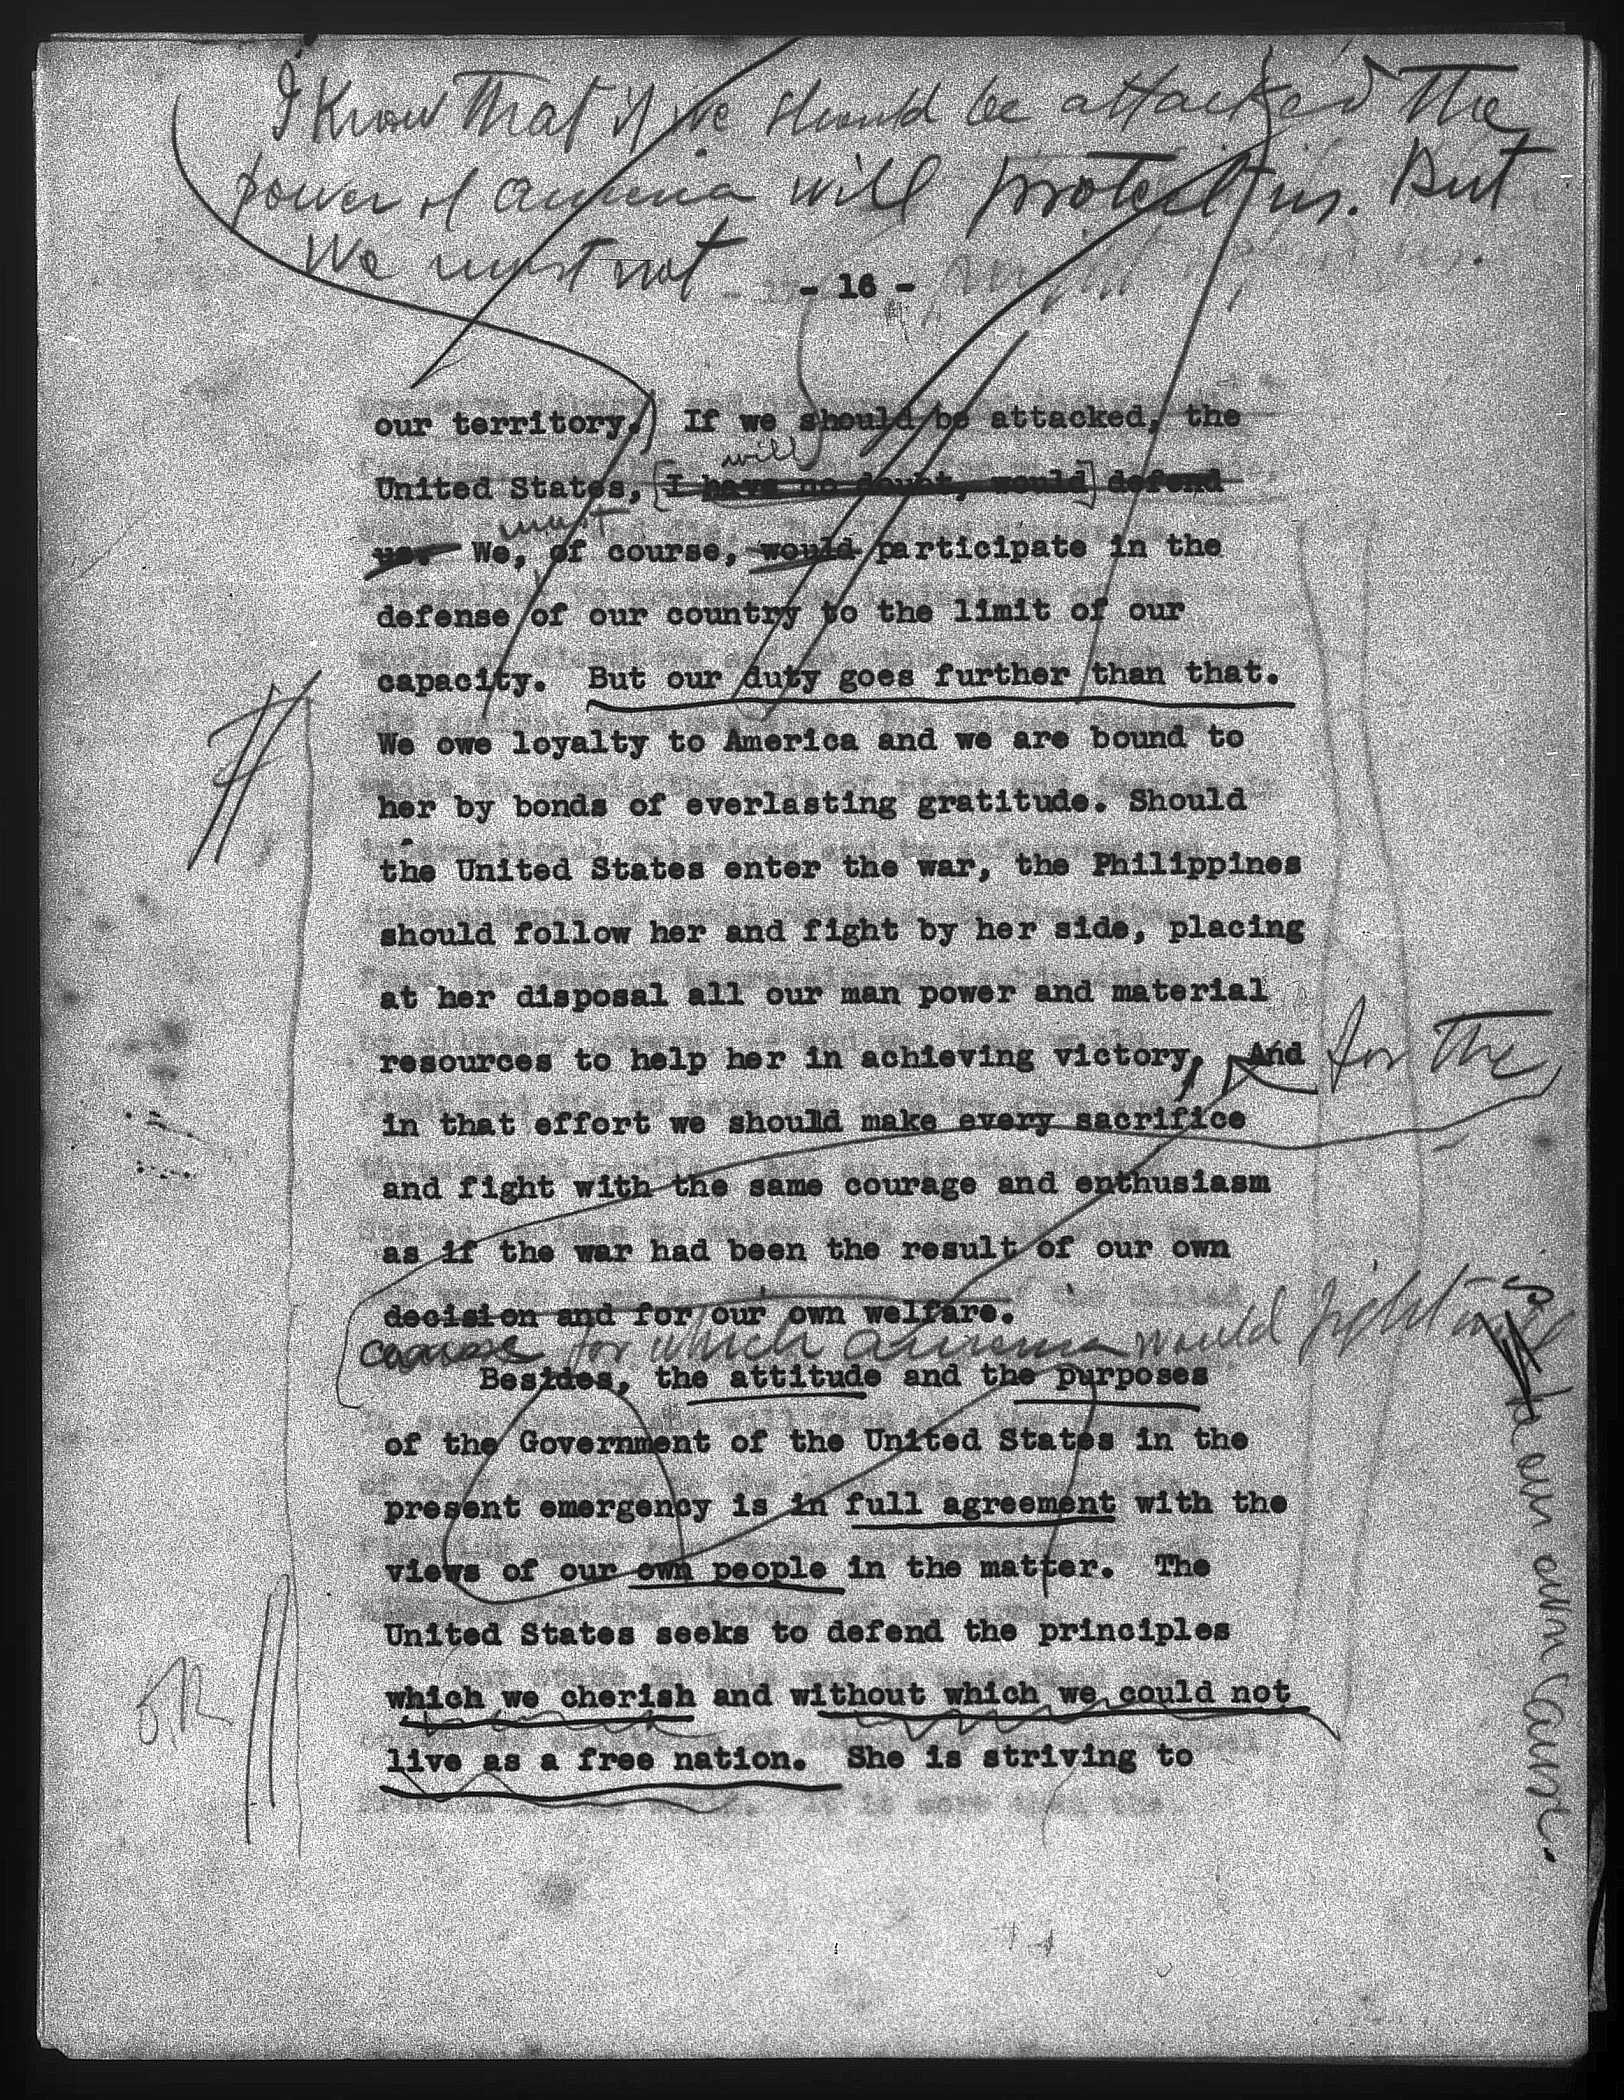 I know that if we should be attacked the
power of America will protect us. But
We must not
- 16 -
our territory.) If we should be attacked, the
will
United States, [I have no doubt, would] defend
must
us. We, of course, would participate in the
defense of our country to the limit of our
capacity. But our duty goes further than that.
We owe loyalty to America and we are bound to
her by bonds of everlasting gratitude. Should
the United States enter the war, the Philippines
should follow her and fight by her side, placing
at her disposal all our man power and material
resources to help her in achieving victory, And for the
in that effort we should make every sacrifice
and fight with the same courage and enthusiasm
as if the war had been the result of our own
decision and for our own welfare.
cause for which America would fight is
our own cause.
Besides, the attitude and the purposes
of the Government of the United States in the
present emergency is in full agreement with the
views of our own people in the matter. The
United States seeks to defend the principles
which we cherish and without which we could not
live as a free nation. She is striving to